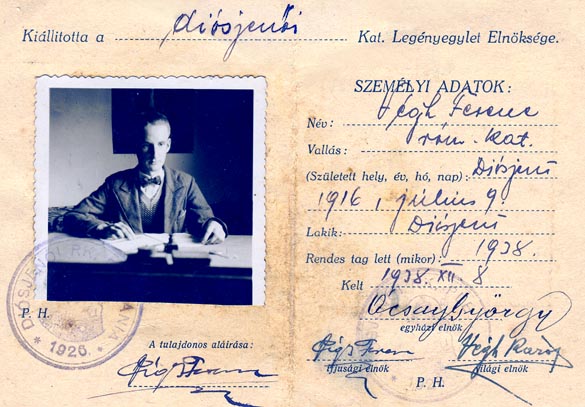 Kiállitotta a diósjenői Kat. Legényegylet Elnöksége.
P. H.
1926.
A tulajdonos aláirása:
Végh Ferenc
SZEMÉLYI ADATOK:
Név: Végh Ferenc
Vallás: róm. kat.
(Született hely, év, hó, nap): Diósjenő
1916, július 9.
Lakik: Diósjenő
Rendes tag lett (mikor): 1938.
Kelt 1938. XII. 8
Ocsay György
egyházi elnök
Végh Ferenc
ifjusági elnök
Végh Károly
világi elnök
P. H.